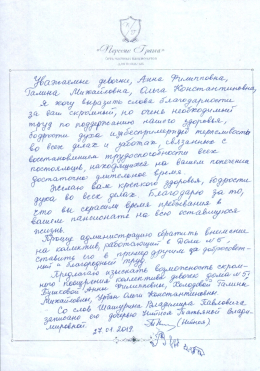 Уважаемые девочки, Анна Филипповна,
Галина Михайловна, Ольга Константиновна,
Я хочу выразить слова благодарности
за ваш скромный, но очень необходимый
труд по поддержанию нашего здоровья,
бодрости духа
во всех делах и заботах, связанных с
восстановлением трудоспособности всех
постояльцев, находящихся на вашем попечении
достаточно длительное время.
Желаю вам крепкого здоровья, бодрости
духа во всех делах. Благодарю за то,
что вы скрасили время пребывания в
вашем пансионате на всю оставшуюся
жизнь.
Прошу администрацию обратить внимание
на коллектив, работающий в Доме №5,
ставить его в пример другим за добросовест-
ный и благородный труд.
Предлагаю изыскать возможность скром-
ного поощрения коллектива дома №5,
Анны Филипповны, Галины
Михайловны, Ольги Константиновны.
Со слов Владимира Павловича
записано его дочерью Татьяной Влади-
мировной
27.01.2019